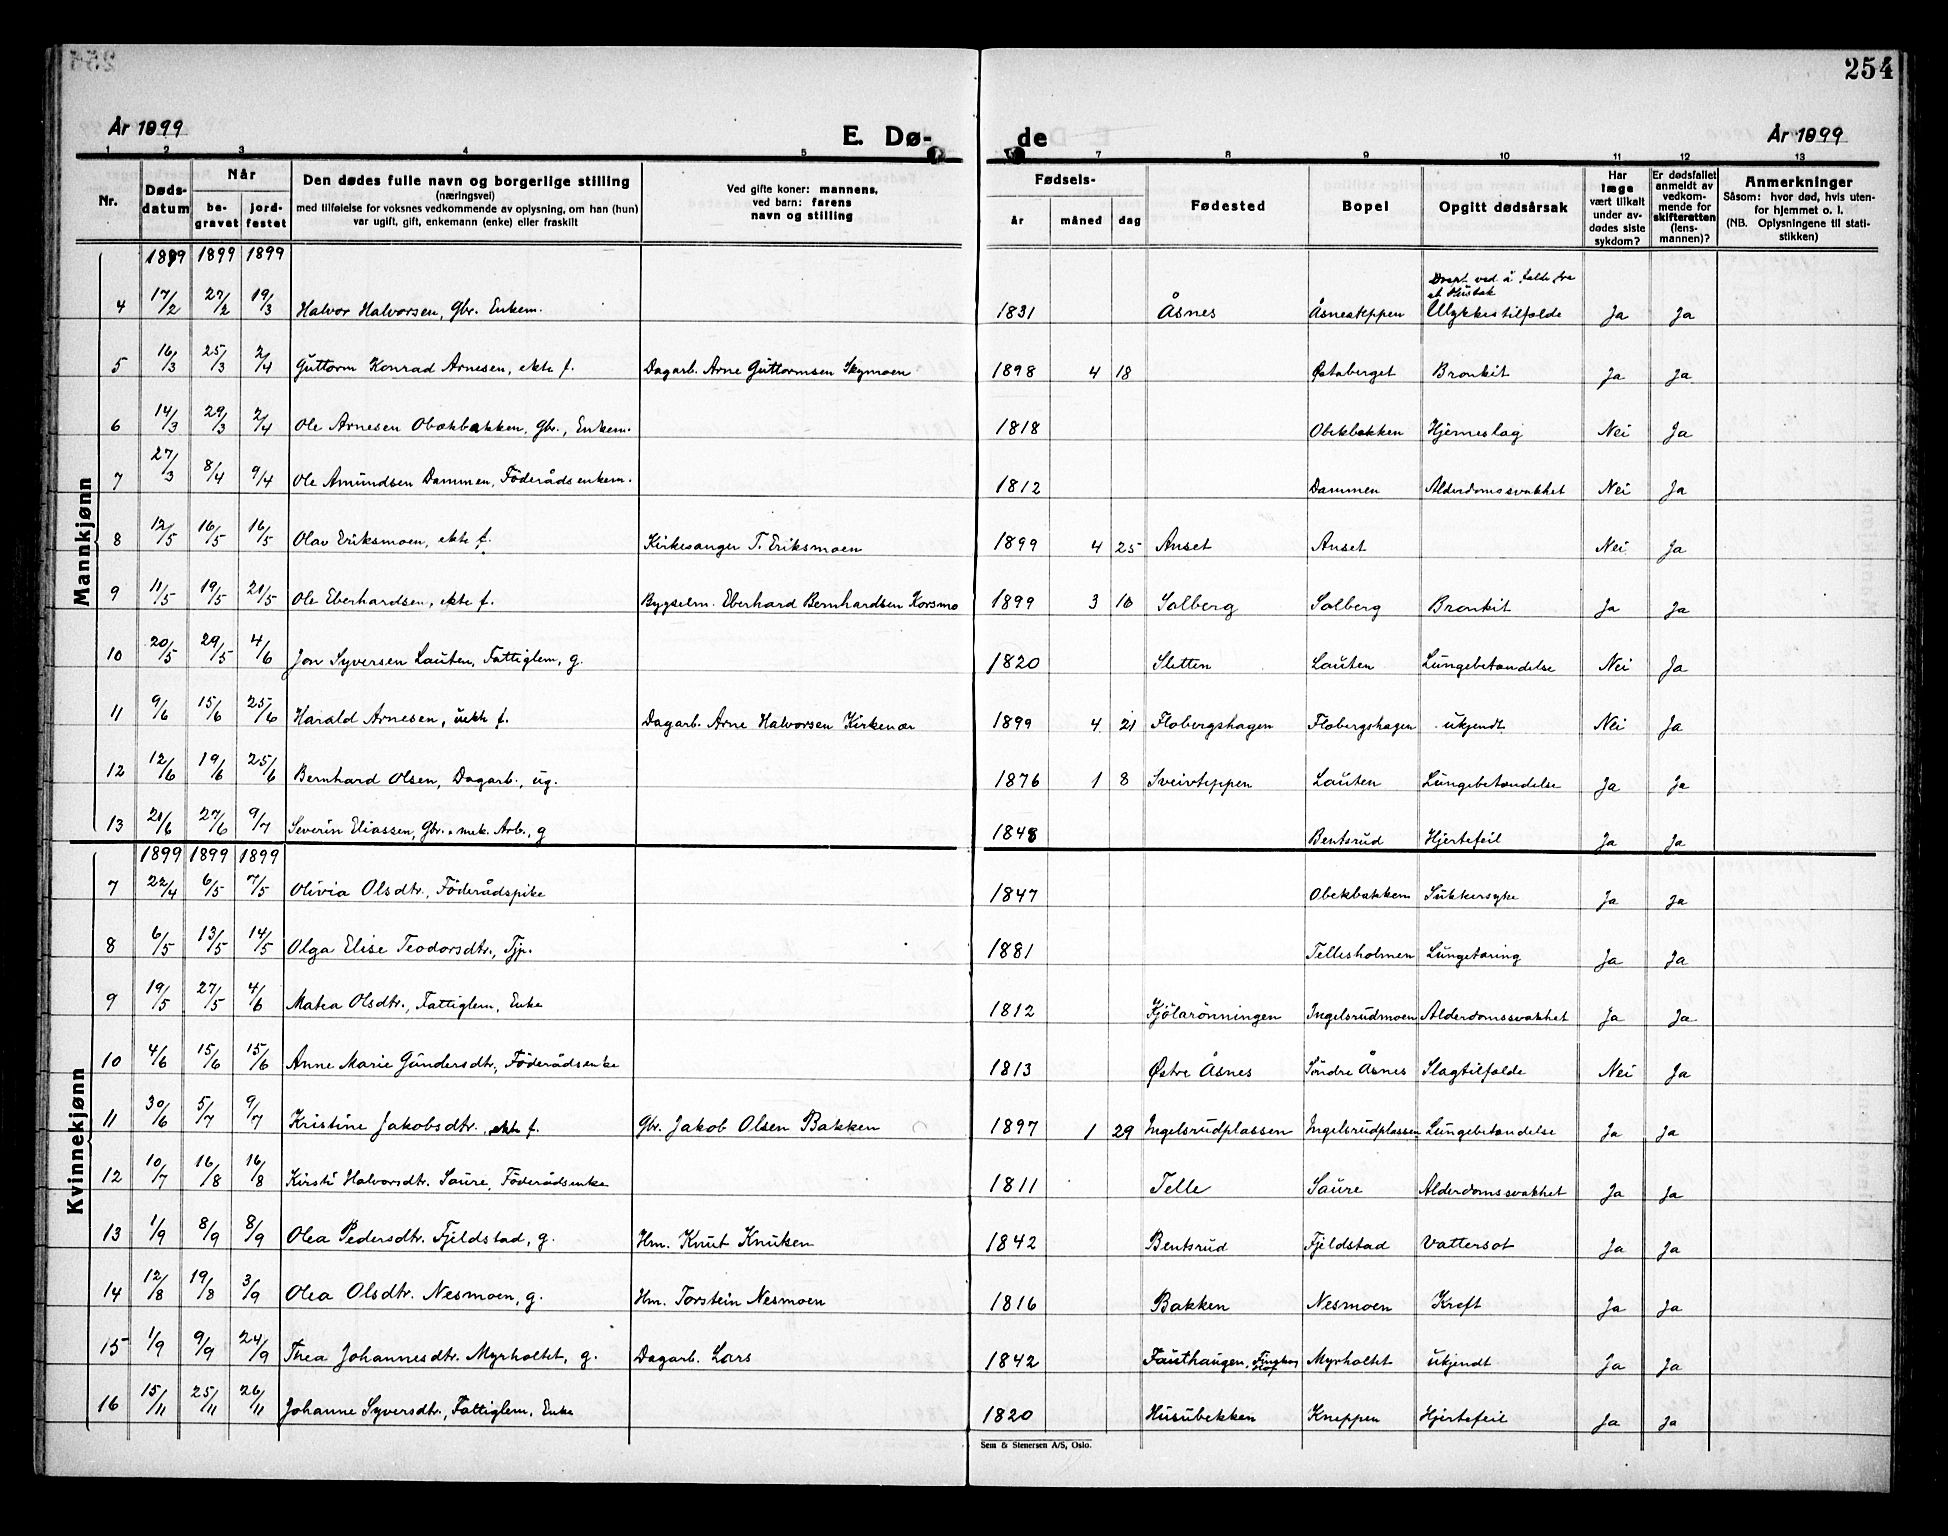 254
År 1899
E. Dø-
de
År 1899
1 2 3 4 5 7 8 9 10 11 12 13
Nr.
Døds-
datum
Når
be-
gravet
jord-
festet
Den dødes fulle navn og borgerlige stilling
(næringsvei)
med tilføielse for voksnes vedkommende av oplysning, om han (hun)
var ugift, gift, enkemann (enke) eller fraskilt
Ved gifte koner: mannens,
ved barn: farens
navn og stilling
Fødsels-
år
måned
dag
Fødested
Bopel
Opgitt dødsårsak
Har
læge
vært tilkalt
under av-
dødes siste
sykdom?
Er dødsfallet
anmeldt av
vedkom-
mende for
skifteretten
(lens-
mannen)?
Anmerkninger
Såsom: hvor død, hvis uten-
for hjemmet o. l.
(NB. Oplysningene til stati-
stikken)
Mannkjønn
1899 1899 1899
Drept ved å falde fra
et Hustak
4 17/2 27/2 19/3 Halvor Halvorsen, Gbr. Enkem. 1831 Åsnes Åsneskeppen Ulykkestilfælde Ja Ja
5 16/3 25/3 2/4 Guttorm Konrad Arnesen, ekte f. Dagarb. Arne Guttormsen Skymoen 1898 4 18 Østaberget Bronkit Ja Ja
6 14/3 29/3 2/4 Ole Arnesen Obækbakken, Gbr., Enkem. 1818 Obekbakken Hjerneslag Nei Ja
7 27/3 8/4 9/4 Ole Amundsen Dammen, Föderådsenkem. 1812 Dammen Alderdomssvakhet Nei Ja
8 12/5 16/5 16/5 Olav Eriksmoen, ekte f. Kirkesanger T. Eriksmoen 1899 4 25 Anset Anset Nei Ja
9 11/5 19/5 21/5 Ole Eberhardsen, ekte f. Bygselm. Eberhard Bernhardsen Korsmo 1899 3 16 Solberg Solberg Bronkit Ja Ja
10 20/5 29/5 4/6 Jon Syversen Lauten, Fattiglem, g. 1820 Sletten Lauten Lungebetændelse Nei Ja
11 9/6 15/6 25/6 Harald Arnesen, uekte f. Dagarb. Arne Halvorsen Kirkenær 1899 4 21 Flobergshagen Flobergshagen ukjendt Nei Ja
12 12/6 19/6 25/6 Bernhard Olsen, Dagarb., ug. 1876 1 8 Sveivteppen Lauten Lungebetændelse Ja Ja
13 21/6 27/6 9/7 Severin Eliassen, Gbr. mek. Arb., g 1848 Bentsrud Hjertefeil Ja Ja
Kvinnekjønn
1899 1899 1899
7 22/4 6/5 7/5 Olivia Olsdtr., Föderådspike 1847 Obekbakken Sukkersyke Ja Ja
8 6/5 13/5 14/5 Olga Elise Teodorsdtr., Tjp. 1881 Tellesholmen Lungetæring Ja Ja
9 19/5 27/5 4/6 Matea Olsdtr., Fattiglem, Enke 1812 Kjölarönningen Ingelsrudmoen Alderdomssvakhet Ja Ja
10 4/6 15/6 15/6 Anne Marie Gundersdtr., Föderådsenke 1813 Østre Åsnes Söndre Åsnes Slagtilfælde Nei Ja
11 30/6 5/7 9/7 Kristine Jakobsdtr. ekte f. Gbr. Jakob Olsen Bakken 1897 1 29 Ingelsrudplassen Ingelsrudplassen Lungebetændelse Ja Ja
12 10/7 16/8 16/8 Kirsti Halvorsdtr. Saure, Föderådsenke 1811 Telle Saure Alderdomssvakhet Ja Ja
13 1/9 8/9 8/9 Olea Pedersdtr. Fjeldstad, g. Hm. Knut Knuken 1842 Bentsrud Fjeldstad Vattersot Ja Ja
14 12/8 19/8 3/9 Olea Olsdtr. Nesmoen, g. Hm. Torstein Nesmoen 1816 Bakken Nesmoen Kreft Ja Ja
15 1/9 9/9 24/9 Thea Johannesdtr. Myrholtet, g. Dagarb. Lars 1842 Fauthaugen, Myrholtet ukjendt Ja Ja
16 15/11 25/11 26/11 Johanne Syversdtr., Fattiglem, Enke 1820 Husubekken Kneppen Hjertefeil Ja Ja
Sem & Stenersen A/S, Oslo.